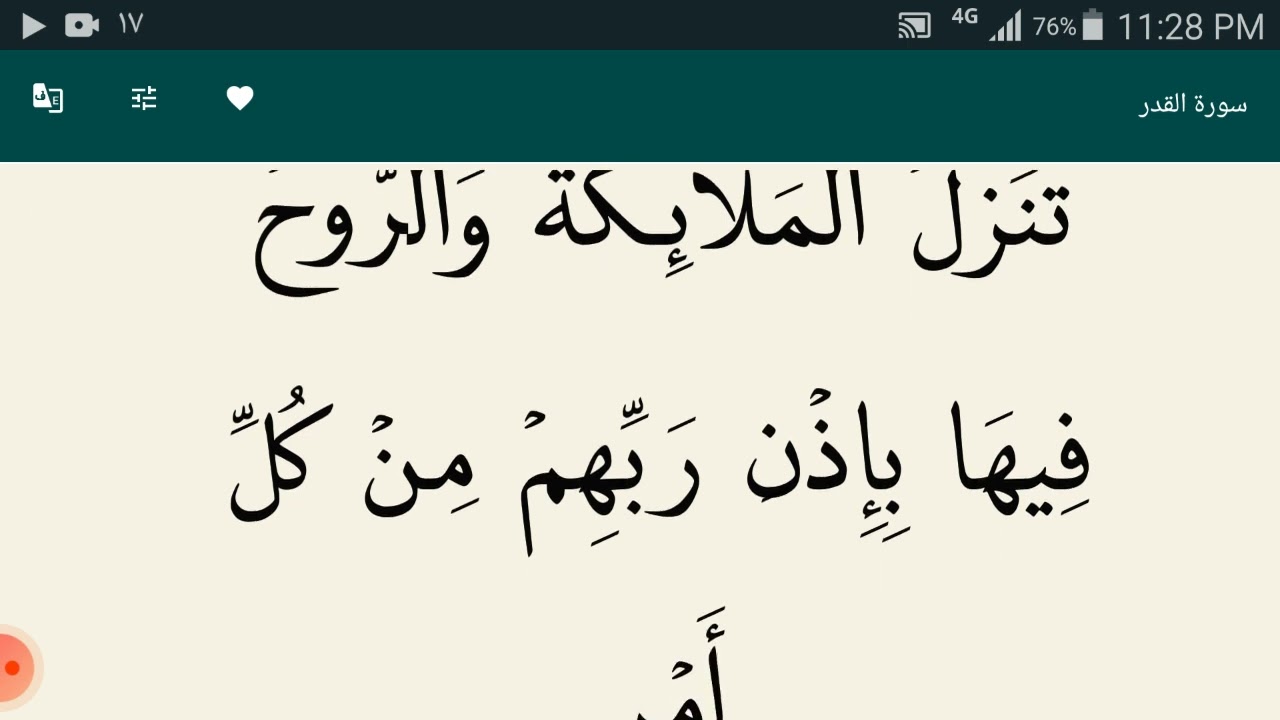 ١٧ 4G 76% 11:28 PM
سورة القدر
تَنَزَّلُ الْمَلَائِكَةُ وَالرُّوحُ
فِيهَا بِإِذْنِ رَبِّهِمْ مِنْ كُلِّ
أَمْرٍ